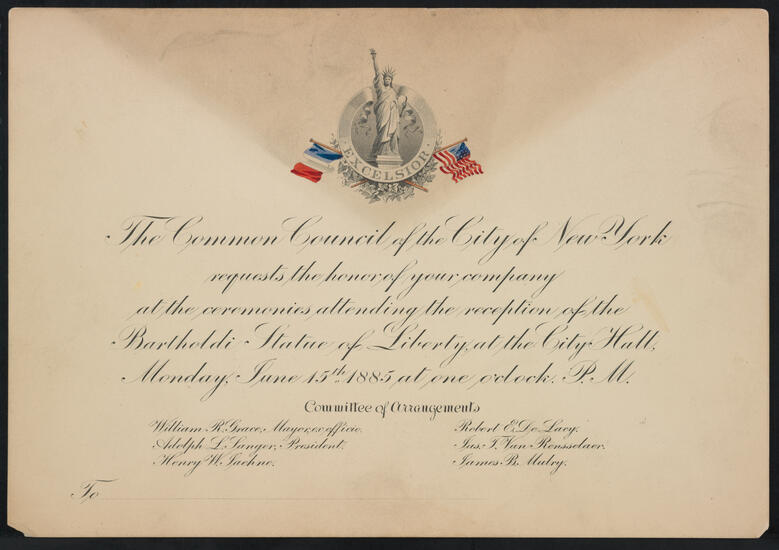 EXCELSIOR
The Common Council of the City of New York
requests the honor of your company
at the ceremonies attending the reception of the
Bartholdi Statue of Liberty, at the City Hall,
Monday, June 15th 1885 at one o'clock. P. M.
Committee of Arrangements
William R. Grace, Mayor, ex officio.
Adolph L. Sanger, President.
Henry W. Jaehne.
Robert E. De Lacy.
Jas. T. Van Rensselaer.
James B. Mulry.
To